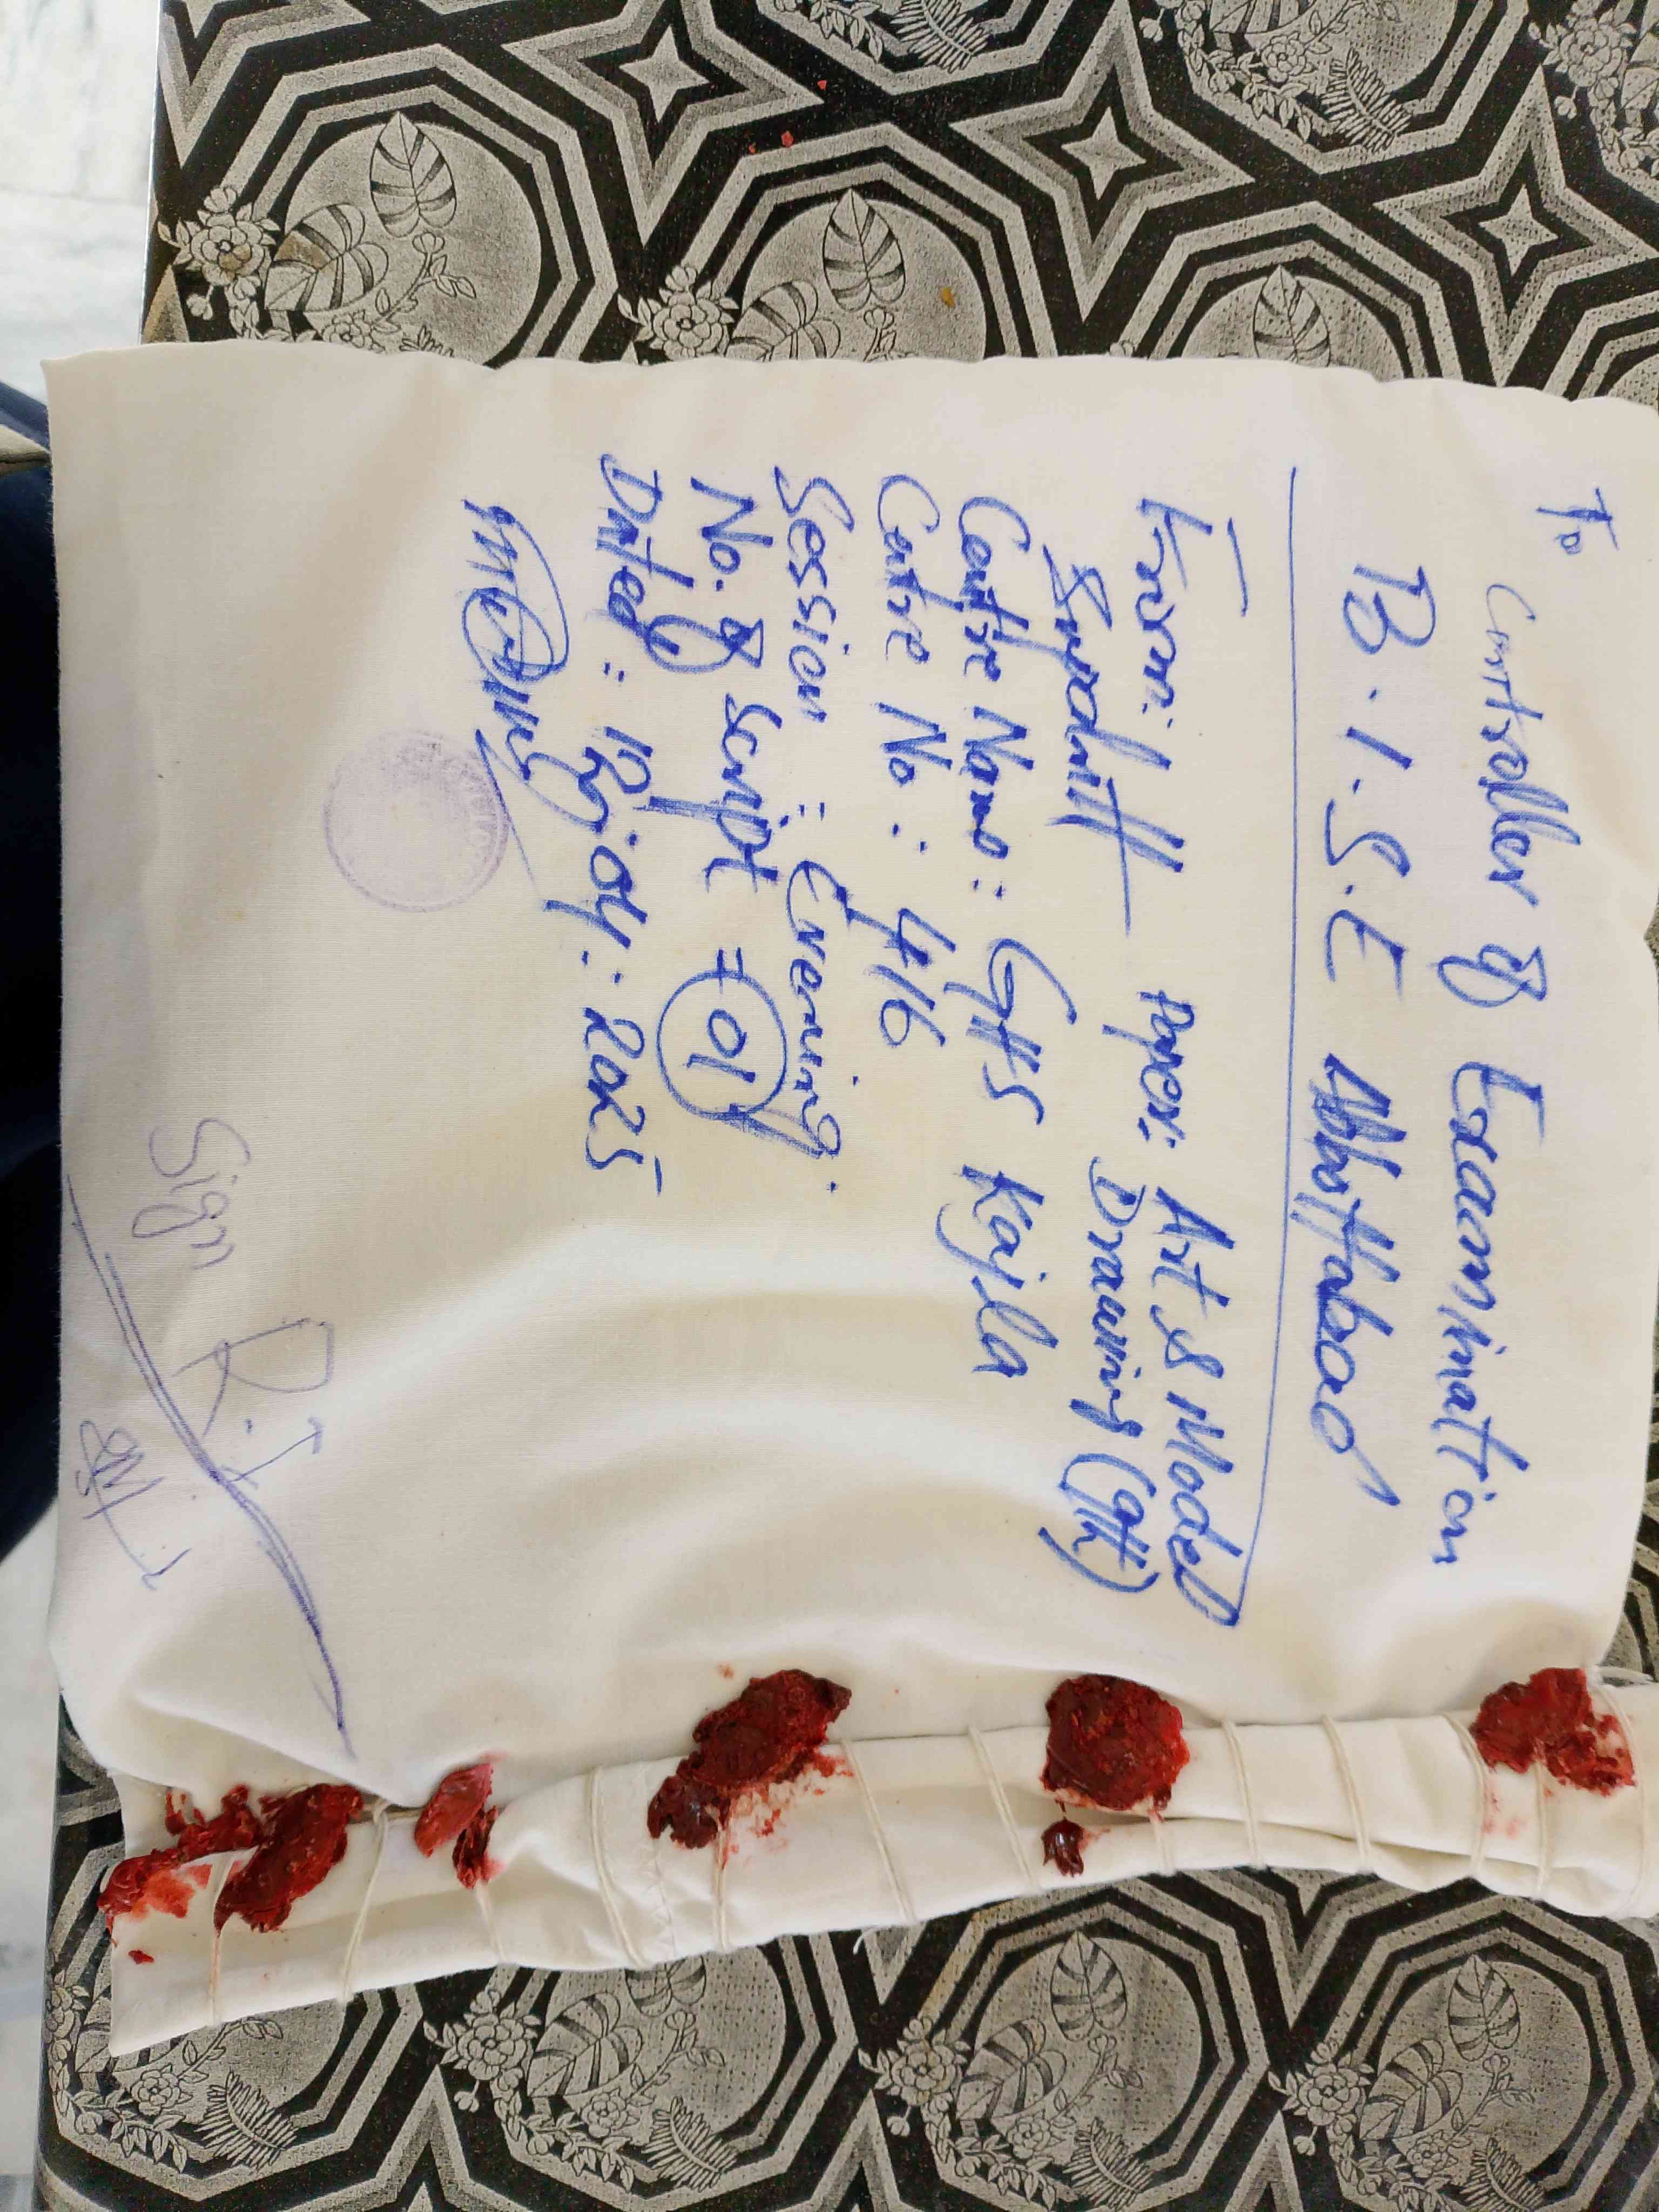 To
Controller of Examination
B.I.S.E Abbottabad
From: Paper: Art & Model
Supdntt Drawing (9th)
Centre Name: GHS Kajla
Centre No: 416
Session: Evening
No. of script = 01
Dated: 12:04:2025
Sign R.I